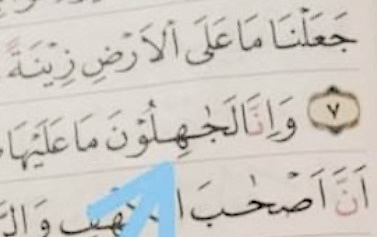 جَعَلْنَا مَا عَلَى الْاَرْضِ زِيْنَةً
٧ وَاِنَّا لَجٰهِلُوْنَ مَا عَلَيْهَا
اَنَّ اَصْحٰبَ